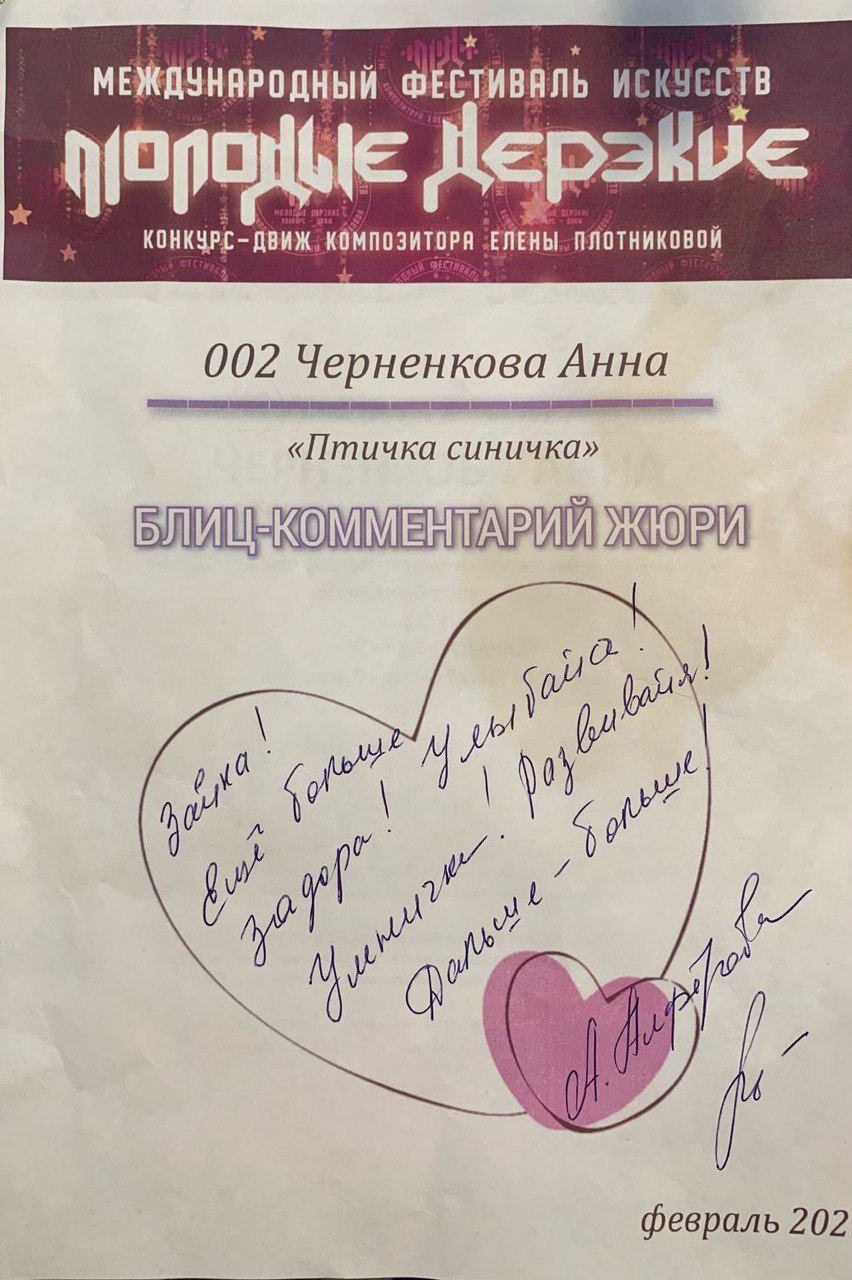 МЕЖДУНАРОДНЫЙ ФЕСТИВАЛЬ ИСКУССТВ
МОЛОДЫЕ ДЕРЗКИЕ
КОНКУРС-ДВИЖ КОМПОЗИТОРА ЕЛЕНЫ ПЛОТНИКОВОЙ
002 Черненкова Анна
«Птичка синичка»
БЛИЦ-КОММЕНТАРИЙ ЖЮРИ
Зайка!
Ещё больше Улыбайся!
задора! Развивайся!
Умничка! Дальше - больше!
А. Алфёрова
февраль 202